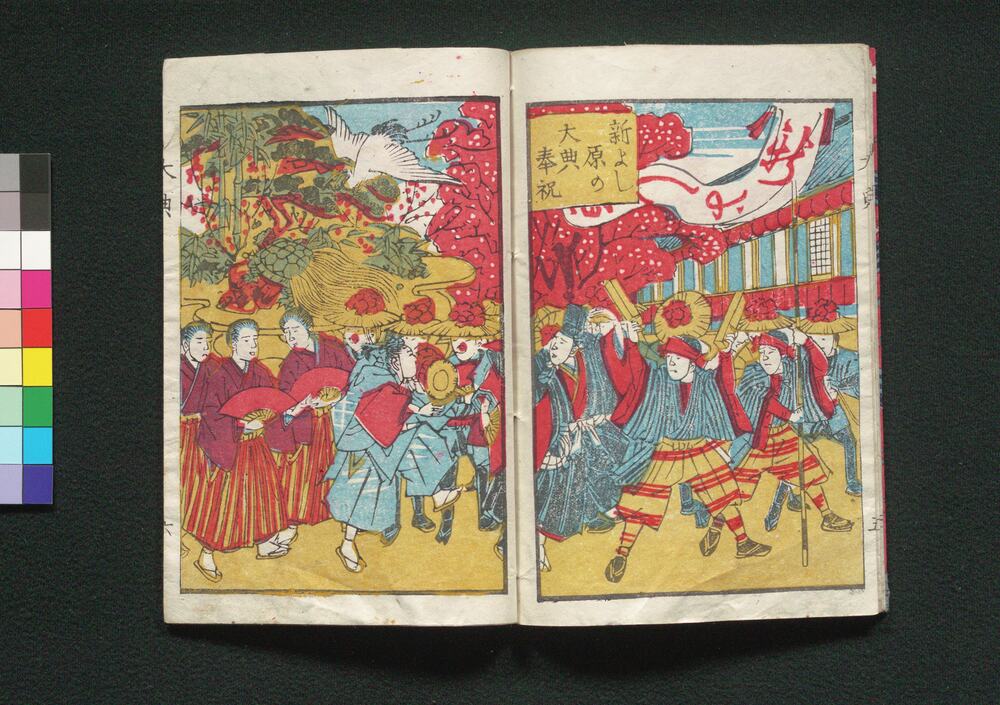 新よし
原の
大典
奉祝
大典
五
大典
六